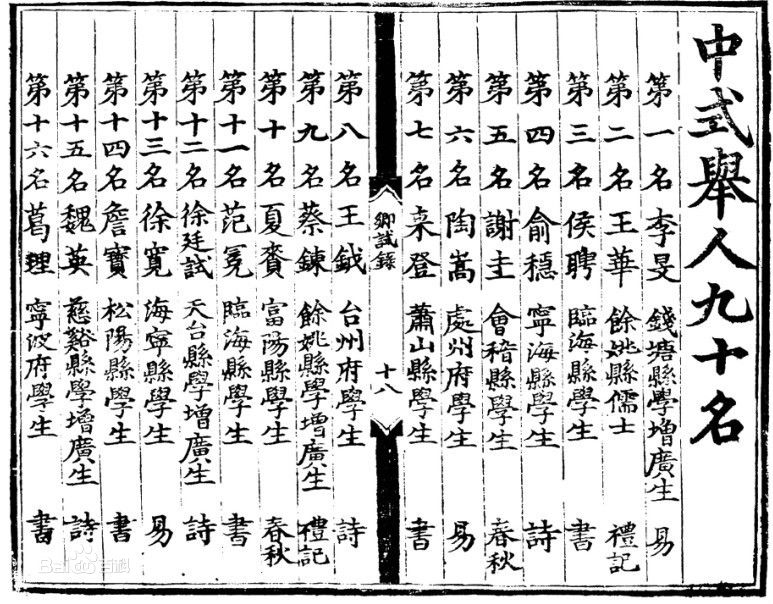 中式舉人九十名
第一名李旻 錢塘縣學增廣生 易
第二名王華 餘姚縣儒士 禮記
第三名侯聘 臨海縣學生 書
第四名俞穩 寧海縣學生 詩
第五名謝圭 會稽縣學生 春秋
第六名陶嵩 處州府學生 易
第七名来登 蕭山縣學生 書
鄉試錄
十八
第八名王鉞 台州府學生 詩
第九名蔡鍊 餘姚縣學增廣生 禮記
第十名夏賚 富陽縣學生 春秋
第十一名范冕 臨海縣學生 書
第十二名徐廷試 天台縣學增廣生 詩
第十三名徐寬 海寧縣學生 易
第十四名詹寶 松陽縣學生 書
第十五名魏英 慈谿縣學增廣生 詩
第十六名葛 寧波府學生 書
Bai百科